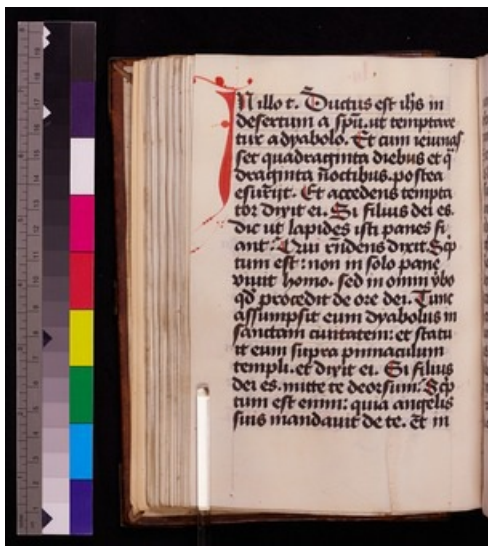 IN illo t̄. Ductus est ih̄s in
desertum a sp̄u. ut temptare
tur a dyabolo. Et cum ieiunas
set quadraginta diebus et q̄
draginta noctibus. postea
esurijt. Et accedens tempta
tor dixit ei. Si filius dei es.
dic ut lapides isti panes fi
ant. Qui r̄ndens dixit. Scp̄
tum est: non in solo pane
viuit homo. sed in omni v̄bo
qd̄ procedit de ore dei. Tunc
assumpsit eum dyabolus in
sanctam ciuitatem: et statu
it eum supra pinnaculum
templi. et dixit ei. Si filius
dei es. mitte te deorsum. Scp̄
tum est enim: quia angelis
suis mandauit de te. Et in